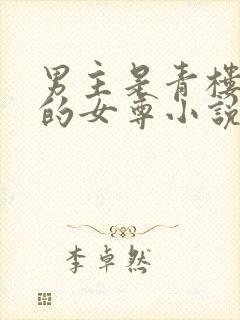 男主是青楼
的女尊小说
李卓然